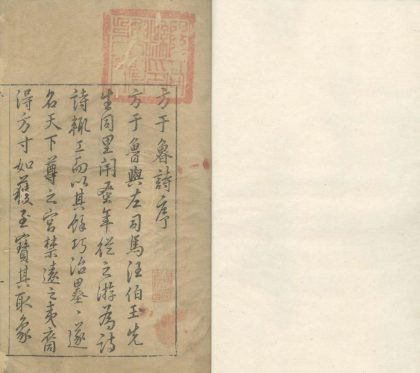 方于魯詩序
方于魯與左司馬汪伯玉先
生同里閈蚤年從之游為詩
詩輒工而以其餘巧治墨〻遂
名天下尊之宮禁遠之夷裔
得方寸如獲至寶其取象